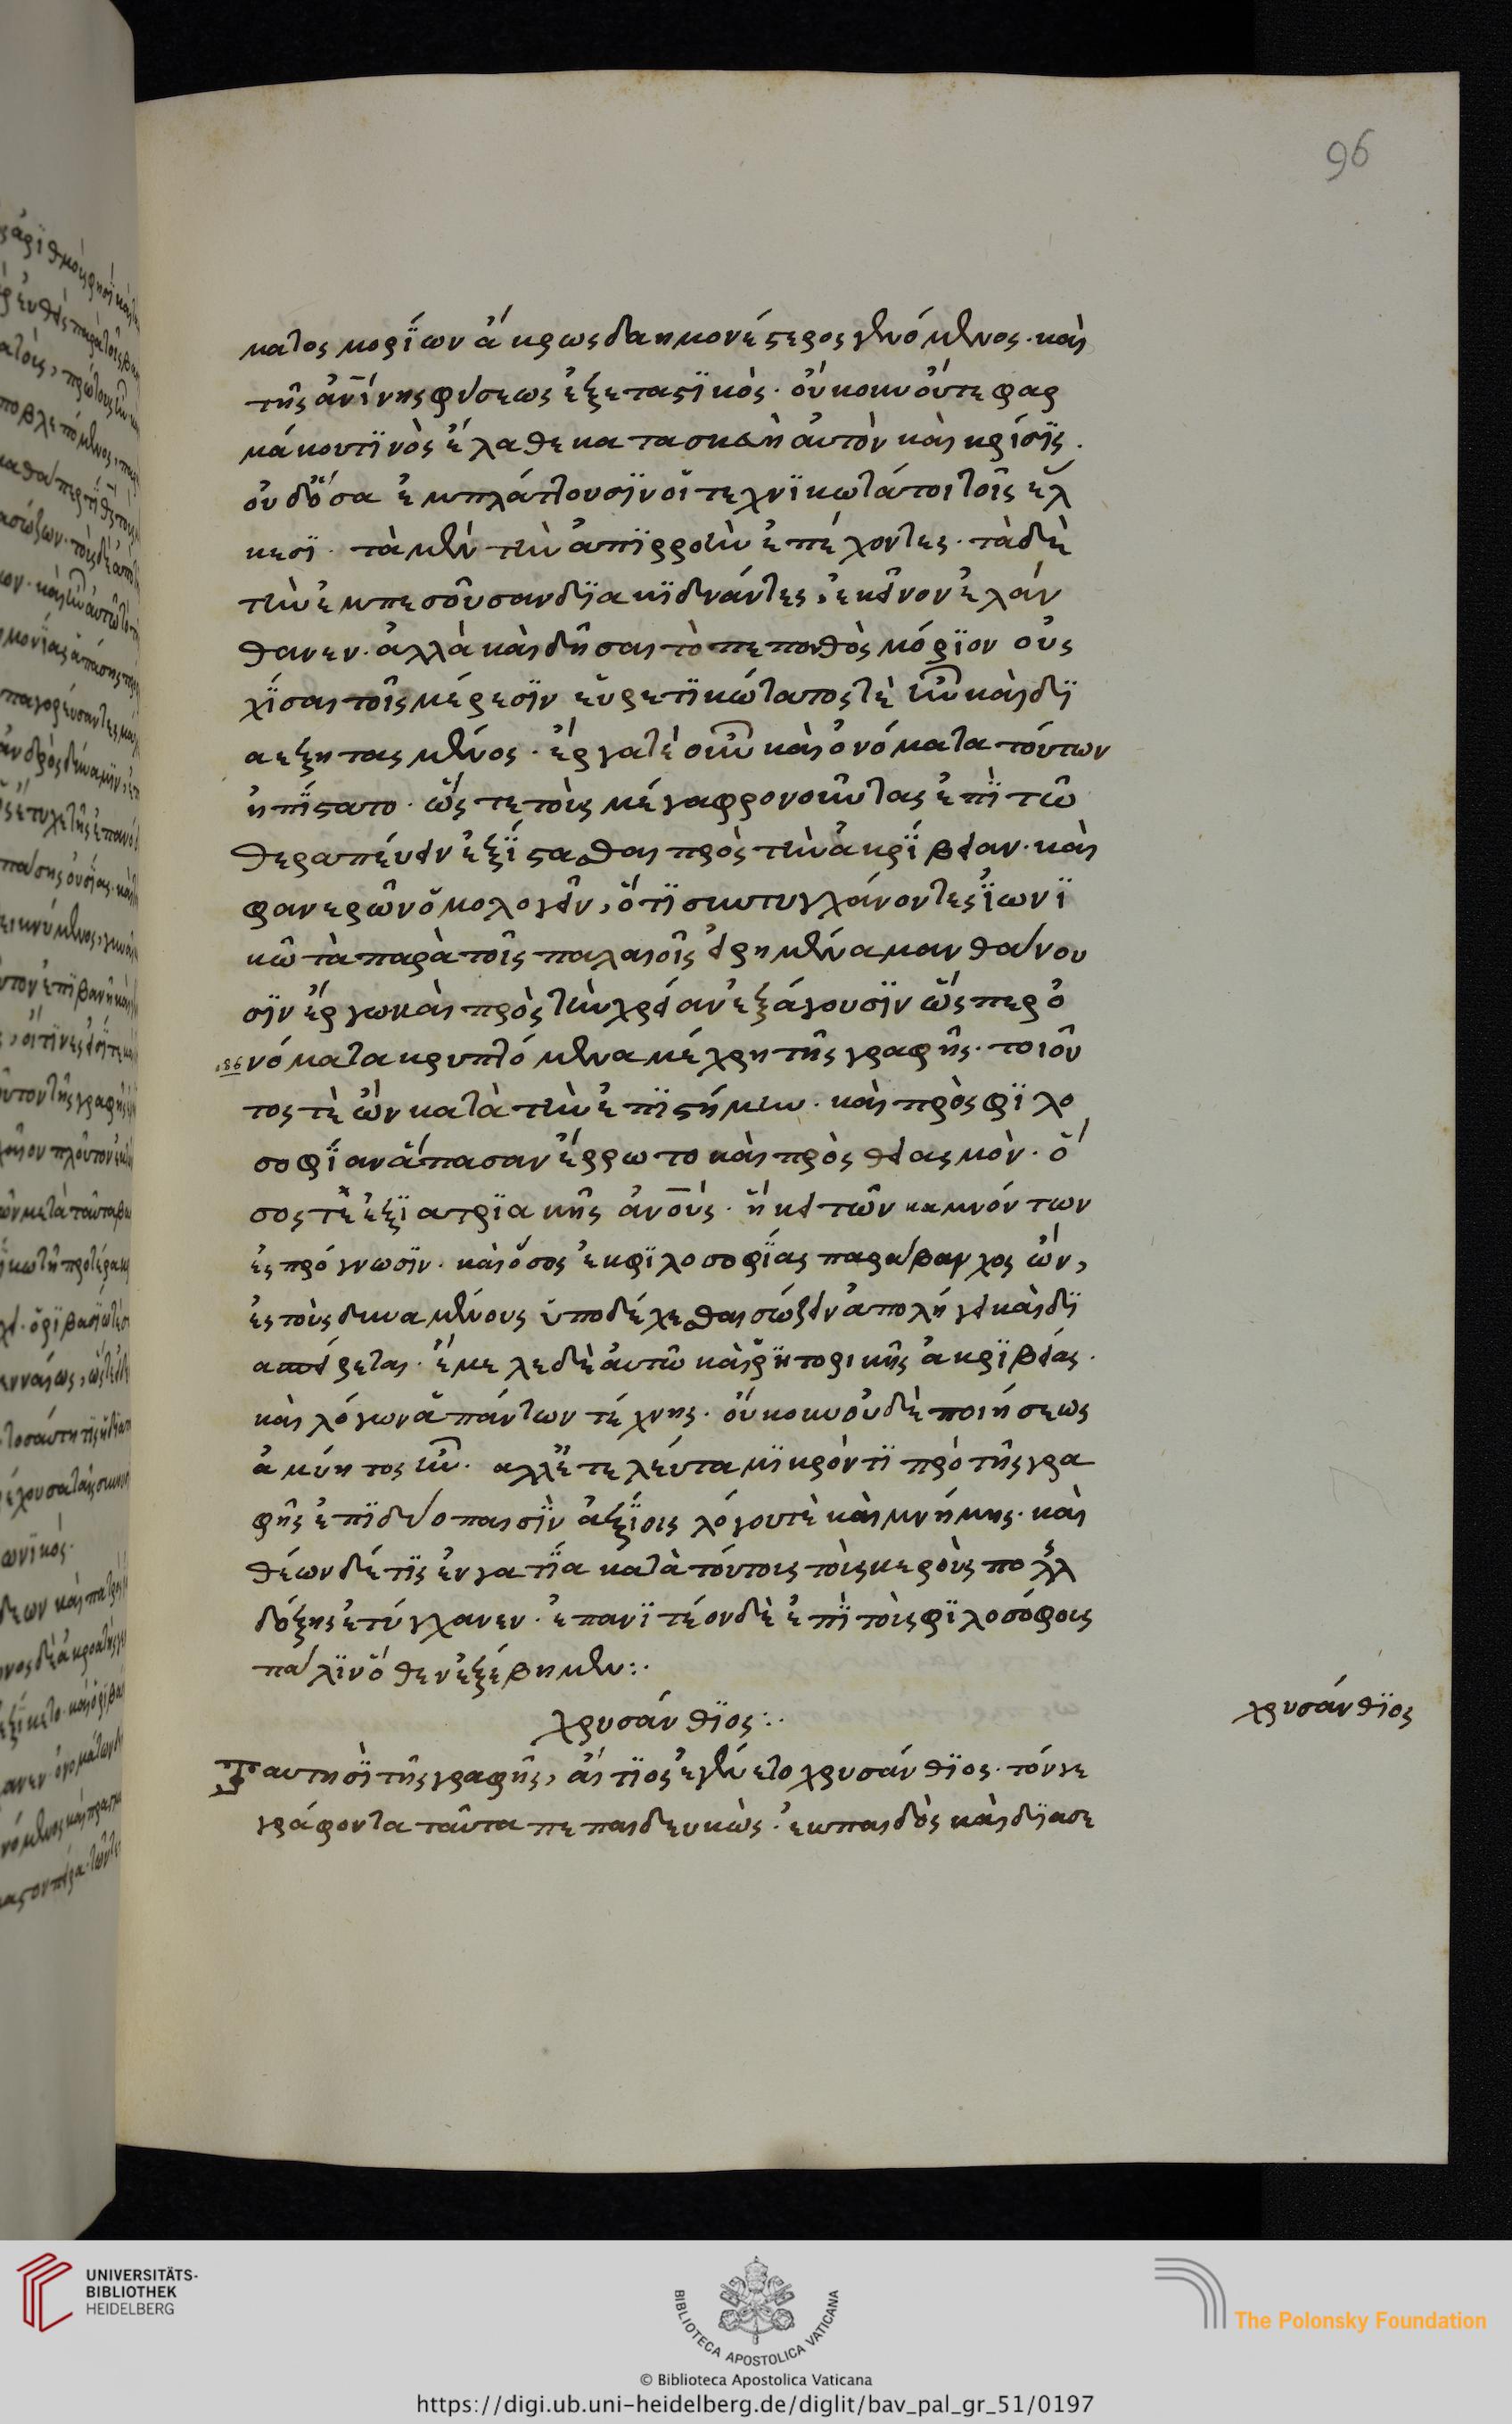 ματος μορΐων ἄκρως δαημονέστερος γενόμενος. καὶ
τῆς ἀνίνης φύσεως ἐξεταστϊκὸς. οὐκουν οὔτε φαρ
μάκου τϊνὸς ἔλαθε κατασκευὴ αὐτὸν καὶ κρίσϊς.
οὐδ ὅσα ἐμπλάττουσϊν οἱ τεχνϊκωτάτοι τοῖς ἕλ
κεσϊ. τὰ μὲν τὴν ἀπϊρροὴν ἐπέχοντες. τὰ δὲ
τὴν ἐμπεσοῦσαν δϊακϊδνάντες, ἐκεῖνον ἐλάν
θανεν. ἀλλὰ καὶ δῆσαι τὸ πεπονθὸς μόρϊον οὐς
χΐσαι τοῖς μέρεσϊν εὑρετϊκώτατος τὲ ἦν καὶ δϊ
αεξητασμένος. ἔργα τὲ οὖν καὶ ὀνόματα τούτων
ἠπΐστατο. ὥς τε τοὺς μέγα φρονοῦντας ἐπῒ τῶ
θεραπέυειν ἐξΐστασθαι πρὸς τὴν ἀκρΐβειαν. καὶ
φανερῶν ὁμολογεῖν, ὅτϊ συντυγχάνοντες ἴωνϊ
κῶ τὰ παρὰ τοῖς παλαιοῖς εἰρημένα μανθάνου
σϊν ἔργω καὶ πρὸς τὴν χρείαν ἐξάγουσϊν ὥσπερ ὀ
νόματα κρυπτόμενα μέχρη τῆς γραφῆς. τοιοῦ
τος τὲ ὢν κατὰ τὴν ἐπϊστήμην. καὶ πρὸς φϊλο
σοφΐαν ἅπασαν ἔρρωτο καὶ πρὸς θειασμὸν. ὅ
σος τὲ ἐξ ϊατρϊακῆς ἀνοὺς. ἥκει τῶν καμνόντων
ἐς πρόγνωσϊν. καὶ ὅσος ἐκ φϊλοσοφΐας παράβακχος ὢν,
ἐς τοὺς δυναμένους ὑποδέχεσθαι σώζειν ἀπολήγει καὶ δϊ
ασπείρεται. ἔμελε δὲ αὐτῶ καὶ ῥητορικῆς ἀκρϊβείας.
καὶ λόγων ἁπάντων τέχνης. οὔκουν οὐδὲ ποιήσεως
ἀμύητος ἦν. αλλ ἐτελέυτα μϊκρόν τϊ πρὸ τῆς γρα
φῆς ἐπϊ δύο παισῒν ἀξΐοις λόγου τὲ καὶ μνήμης. καὶ
θέων δέ τϊς ἐν γατΐα κατὰ τόυτους τοὺς κερούς πολλ
δόξης ἐτύγχανεν. ἐπανϊτέον δὲ ἐπῒ τοὺς φϊλοσόφους
πάλϊν ὅθεν ἐξέβημεν:.
χρυσάνθϊος:.
χρυσάνθϊος
Ταυτησῒ τῆς γραφῆς, αἴτϊος ἐγένετο χρυσάνθϊος. τόν γε
γράφοντα ταῦτα πεπαιδευκὼς. ἐκ παιδὸς καὶ δϊασε
96
186
UNIVERSITÄTS-
BIBLIOTHEK
HEIDELBERG
BIBLIOTECA APOSTOLICA VATICANA
The Polonsky Foundation
© Biblioteca Apostolica Vaticana
https://digi.ub.uni-heidelberg.de/diglit/bav_pal_gr_51/0197